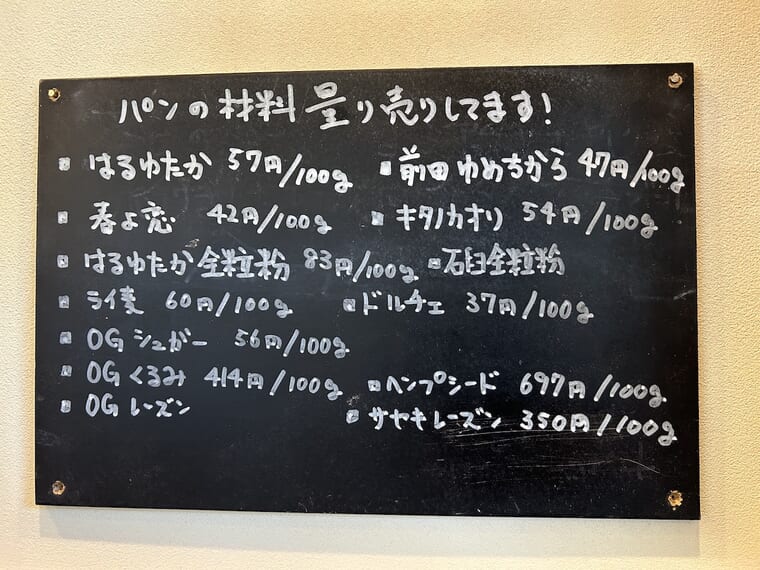 パンの材料 量り売りしてます!
▫ はるゆたか 57円/100g ▫ 前田ゆめちから 47円/100g
▫ 春よ恋 42円/100g ▫ キタノカオリ 54円/100g
▫ はるゆたか全粒粉 83円/100g ▫ 石臼全粒粉
▫ ライ麦 60円/100g ▫ ドルチェ 37円/100g
▫ OGシュガー 56円/100g
▫ OGくるみ 414円/100g ▫ ヘンプシード 697円/100g
▫ OGレーズン ▫ サヤキレーズン 350円/100g